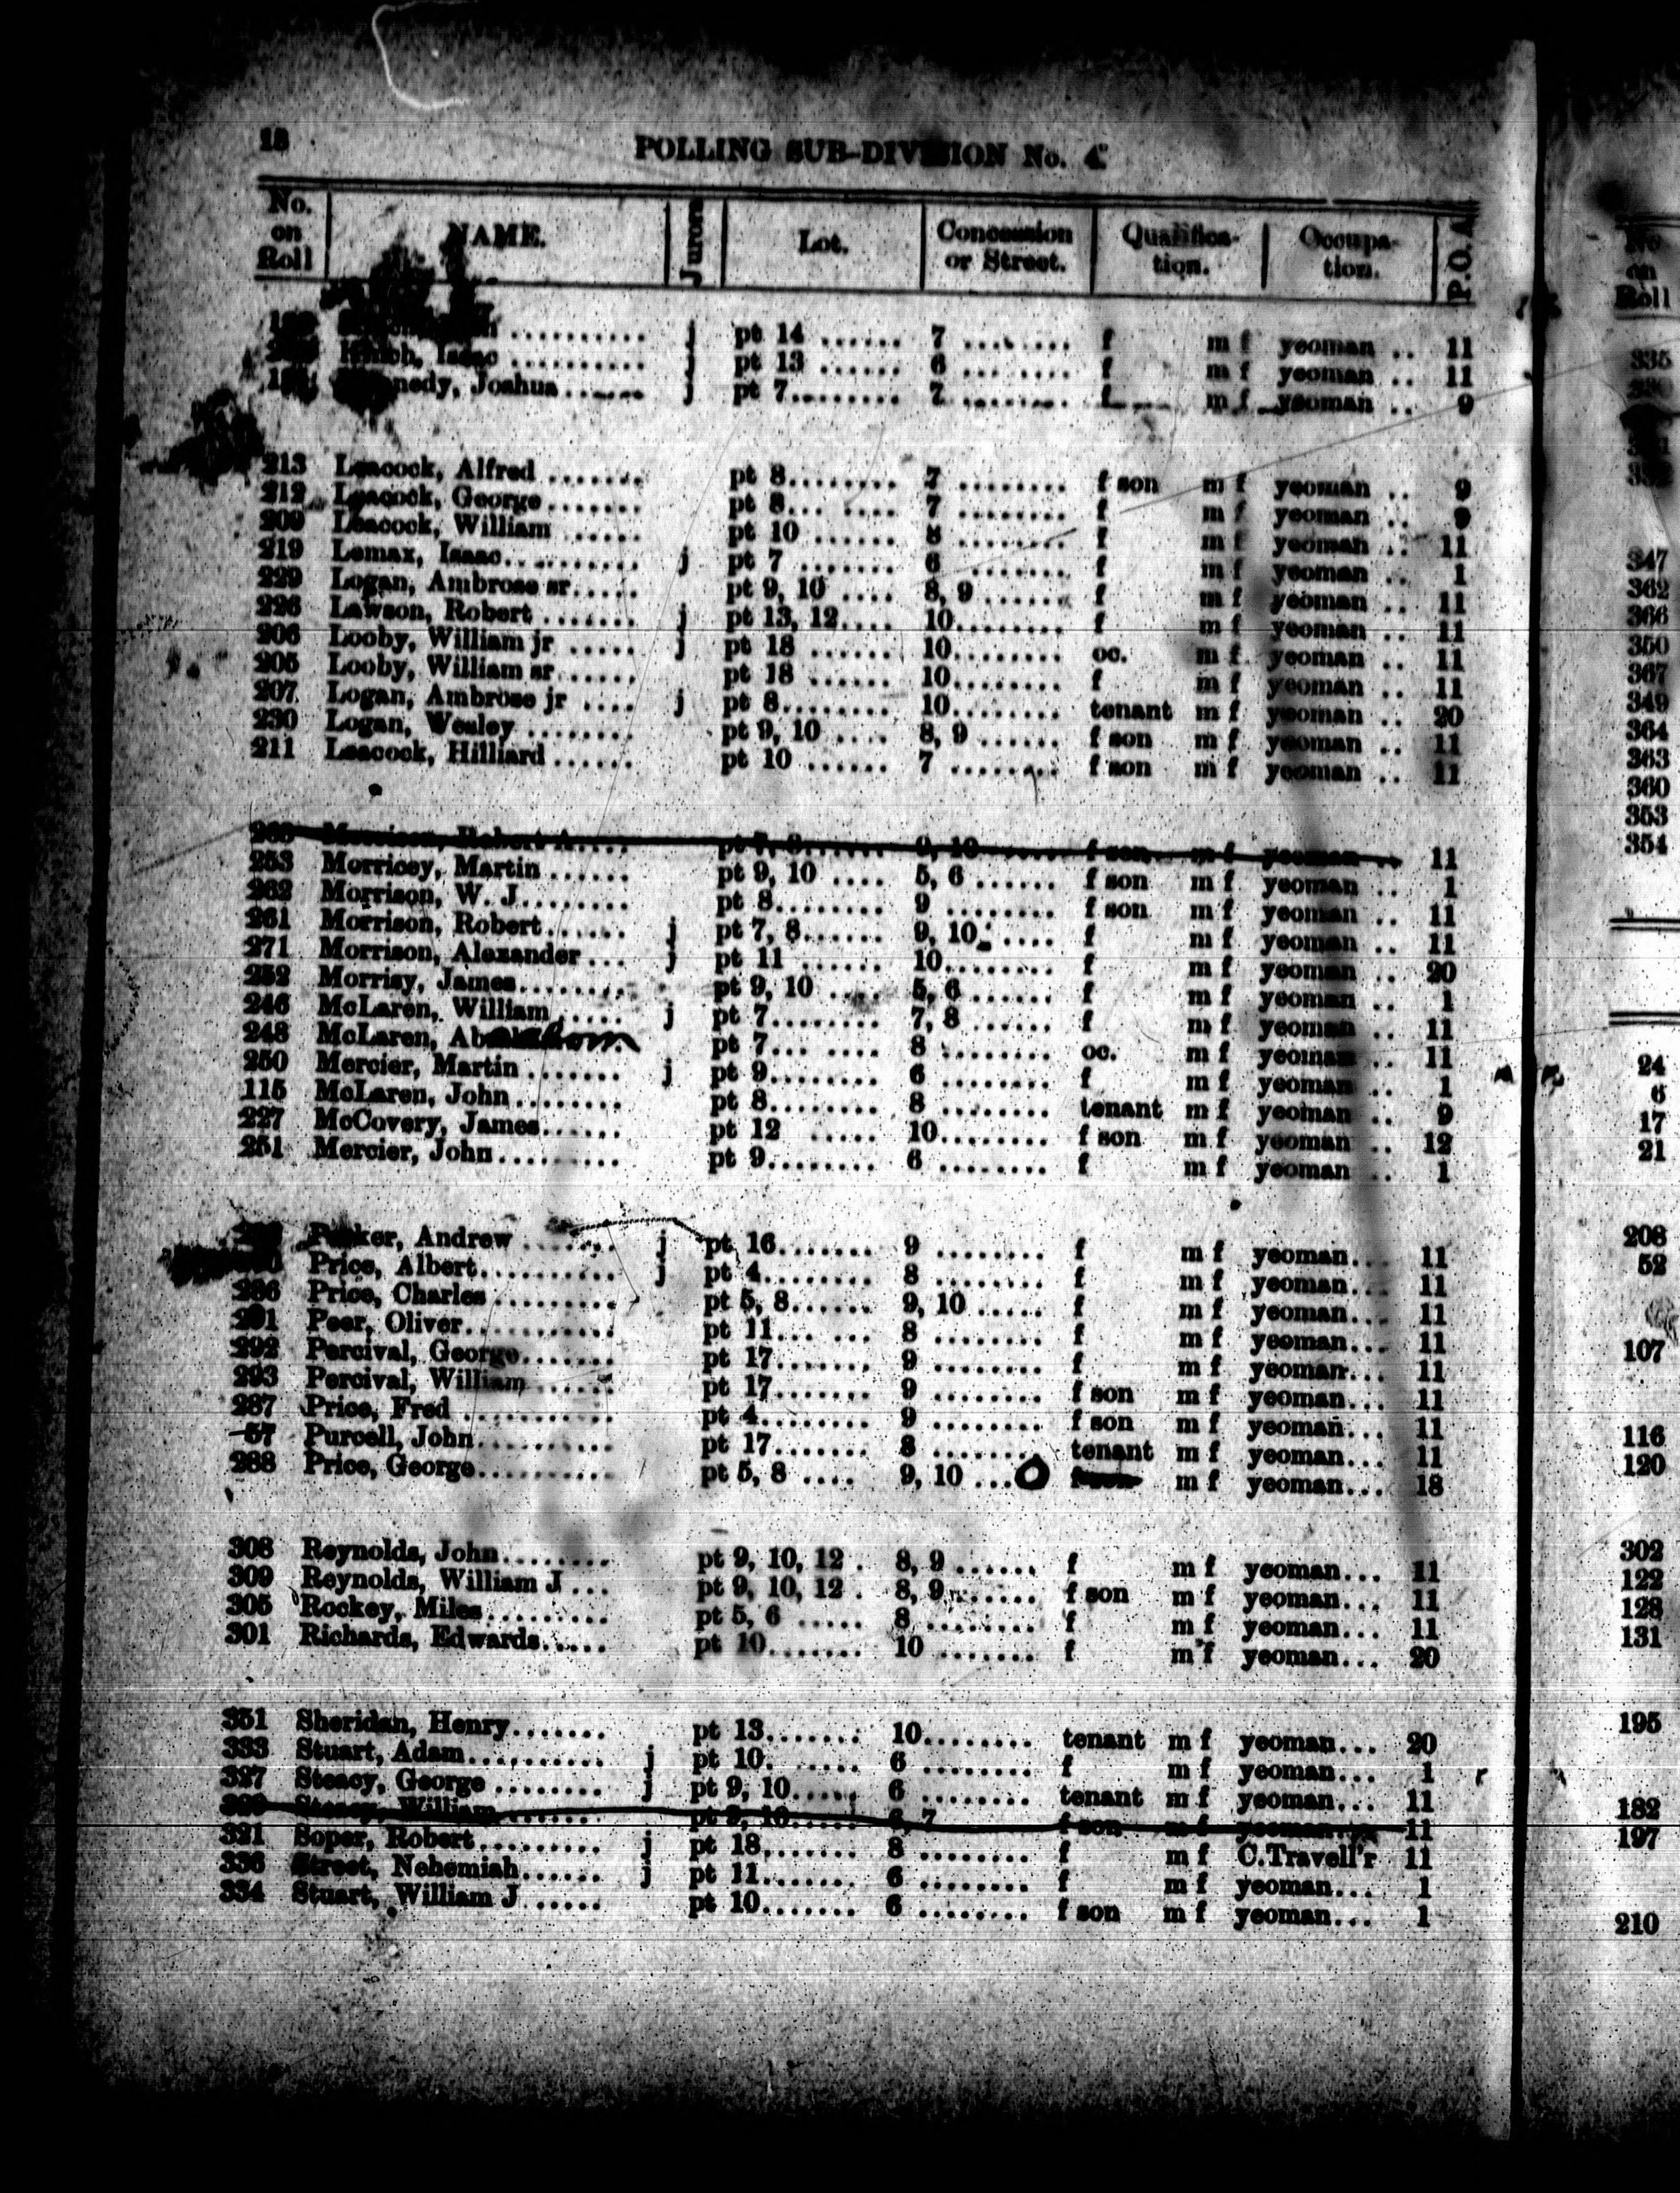 18 POLLING SUB-DIVISION No. 4
No. on Roll NAME. Jurors Lot. Concession or Street. Qualifica-tion. Occupa-tion. P.O. A.
j pt 14 ...... 7 ........ f m f yeoman .. 11
Isaac .......... j pt 13 ...... 6 ........ f m f yeoman .. 11
nedy, Joshua ...... j pt 7........ 7 ........ f m f yeoman .. 9
213 Leacock, Alfred ...... pt 8........ 7 ........ f son m f yeoman .. 9
212 Leacock, George....... pt 8... .... 7 ........ f m f yeoman .. 9
209 Leacock, William ..... pt 10 ...... 8 ........ f m f yeoman .. 11
219 Lomax, Isaac.......... j pt 7 ....... 6 ....... f m f yeoman .. 1
229 Logan, Ambrose sr..... pt 9, 10 .... 8, 9 ...... f m f yeoman .. 11
226 Lawson, Robert ....... j pt 13, 12.... 10........ f m f yeoman .. 11
206 Looby, William jr ..... j pt 18 ...... 10........ oc. m f yeoman .. 11
205 Looby, William sr...... pt 18 ...... 10........ f m f yeoman .. 11
207 Logan, Ambrose jr .... j pt 8........ 10........ tenant m f yeoman .. 20
230 Logan, Wesley ........ pt 9, 10 .... 8, 9 ...... f son m f yeoman .. 11
211 Leacock, Hilliard ...... pt 10 ...... 7 ........ f son m f yeoman .. 11
Morrison, Robert A.... pt 7, 8...... 9, 10...... f son m f yeoman .. 11
253 Morricey, Martin ...... pt 9, 10 .... 5, 6 ...... f son m f yeoman .. 1
262 Morrison, W. J........ pt 8........ 9 ........ f son m f yeoman .. 11
261 Morrison, Robert...... j pt 7, 8...... 9, 10..... f m f yeoman .. 11
271 Morrison, Alexander ... j pt 11 ...... 10........ f m f yeoman .. 20
252 Morrisy, James........ pt 9, 10 .... 5, 6 ...... f m f yeoman .. 1
246 McLaren, William ..... j pt 7........ 7, 8 ...... f m f yeoman .. 11
248 McLaren, pt 7... .... 8 ........ oc. m f yeoman .. 11
250 Mercier, Martin ....... j pt 9........ 6 ........ f m f yeoman .. 1
115 McLaren, John........ pt 8........ 8 ........ tenant m f yeoman .. 9
227 McCovery, James...... pt 12 ..... 10........ f son m f yeoman .. 12
251 Mercier, John......... pt 9........ 6 ........ f m f yeoman .. 1
ker, Andrew ....... j pt 16....... 9 ........ f m f yeoman... 11
Price, Albert.......... j pt 4........ 8 ........ f m f yeoman... 11
286 Price, Charles ......... pt 5, 8...... 9, 10 ...... f m f yeoman... 11
291 Peer, Oliver........... pt 11... ... 8 ........ f m f yeoman... 11
292 Percival, George....... pt 17....... 9 ........ f m f yeoman... 11
293 Percival, William ...... pt 17....... 9 ........ f son m f yeoman... 11
287 Price, Fred ........... pt 4........ 9 ........ f son m f yeoman... 11
57 Purcell, John.......... pt 17....... 8 ........ tenant m f yeoman... 11
288 Price, George.......... pt 5, 8 .... 9, 10 ... O f son m f yeoman... 18
308 Reynolds, John........ pt 9, 10, 12 . 8, 9 ...... f m f yeoman... 11
309 Reynolds, William J ... pt 9, 10, 12 . 8, 9....... f son m f yeoman... 11
305 Rockey, Miles......... pt 5, 6 ..... 8 ........ f m f yeoman... 11
301 Richards, Edwards..... pt 10....... 10 ....... f m f yeoman... 20
351 Sheridan, Henry....... pt 13....... 10........ tenant m f yeoman... 20
333 Stuart, Adam.......... j pt 10. ...... 6 ........ f m f yeoman... 1
327 Steacy, George ........ j pt 9, 10..... 6 ........ tenant m f yeoman... 11
Steacy, William....... pt 9, 10..... 6, 7 f son m f yeoman... 11
321 Soper, Robert......... j pt 18....... 8 ........ f m f C.Travell'r 11
336 Street, Nehemiah...... j pt 11....... 6 ........ f m f yeoman... 1
334 Stuart, William J ..... pt 10....... 6 ........ f son m f yeoman... 1
No on Roll
335
347
362
366
350
367
349
364
363
360
353
354
24
6
17
21
208
52
107
116
120
302
122
128
131
195
182
197
210